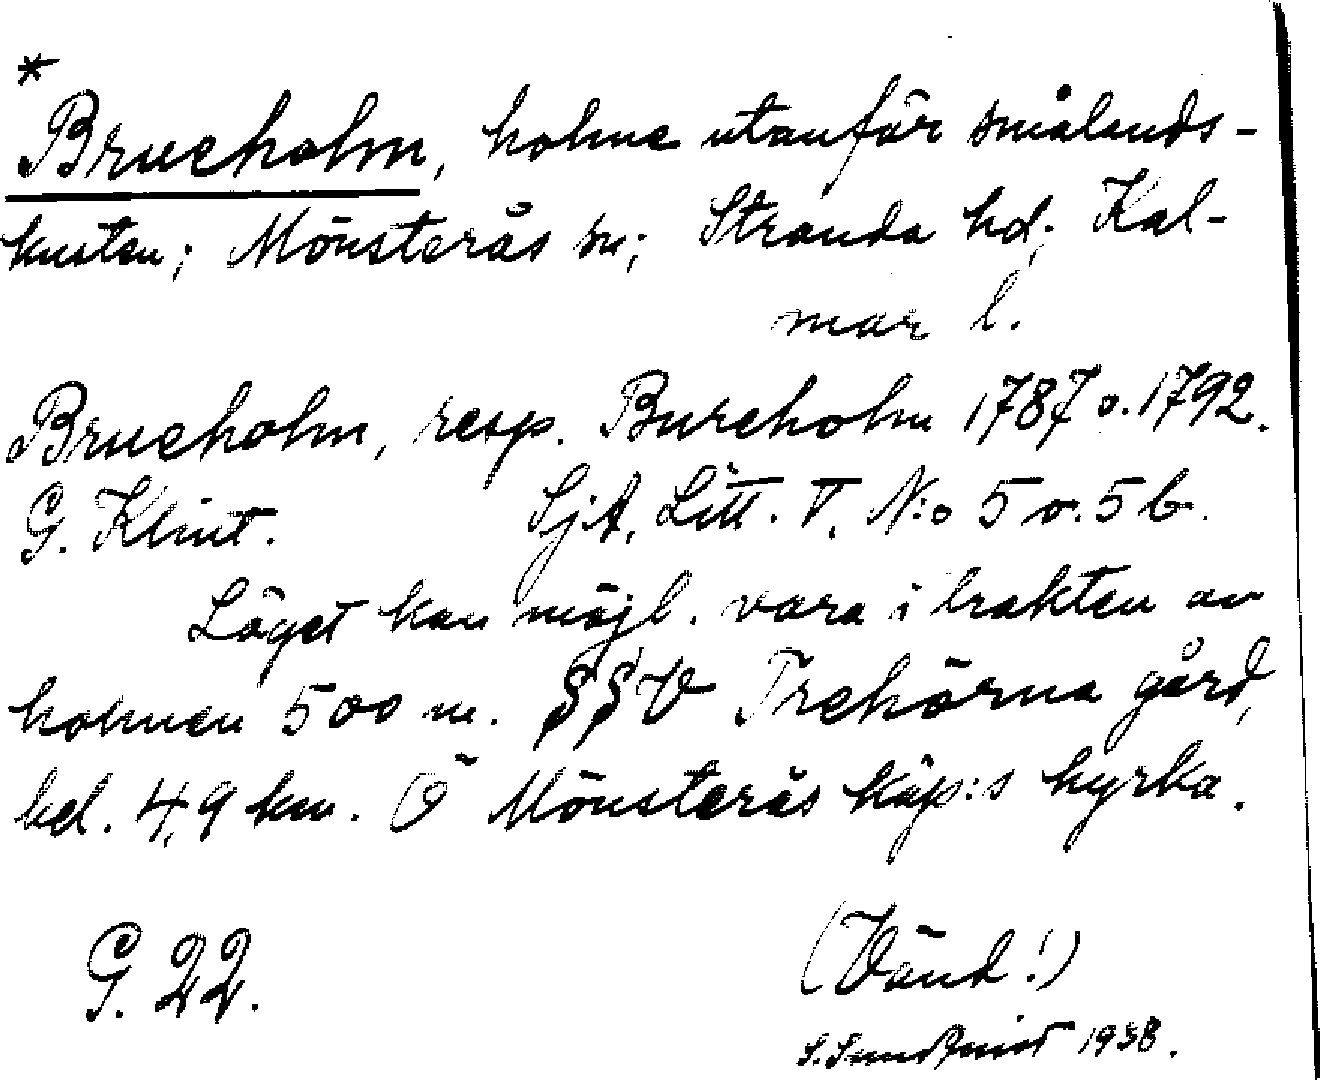 *
Brueholm, holme utanför smålands-
kusten; Mönsterås sn; Stranda hd; Kal-
mar l.
Brueholm, resp. Bureholm 1787 o. 1792.
G. Klint. SjA, Litt. T. N:o 5 o. 5 b.
Läget kan möjl. vara i trakten av
holmen 500 m. SSV Trehörna gård,
bel. 4,9 km. Ö Mönsterås köp:s kyrka.
G. 22.
(Vänd!)
S. Sundquist 1938.